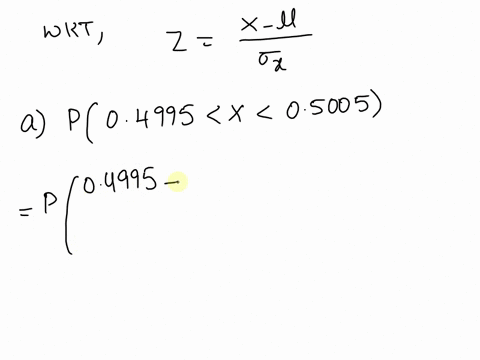 WKT, Z = x-μ / σx
a) P( 0.4995 < x < 0.5005)
= P( 0.4995 -